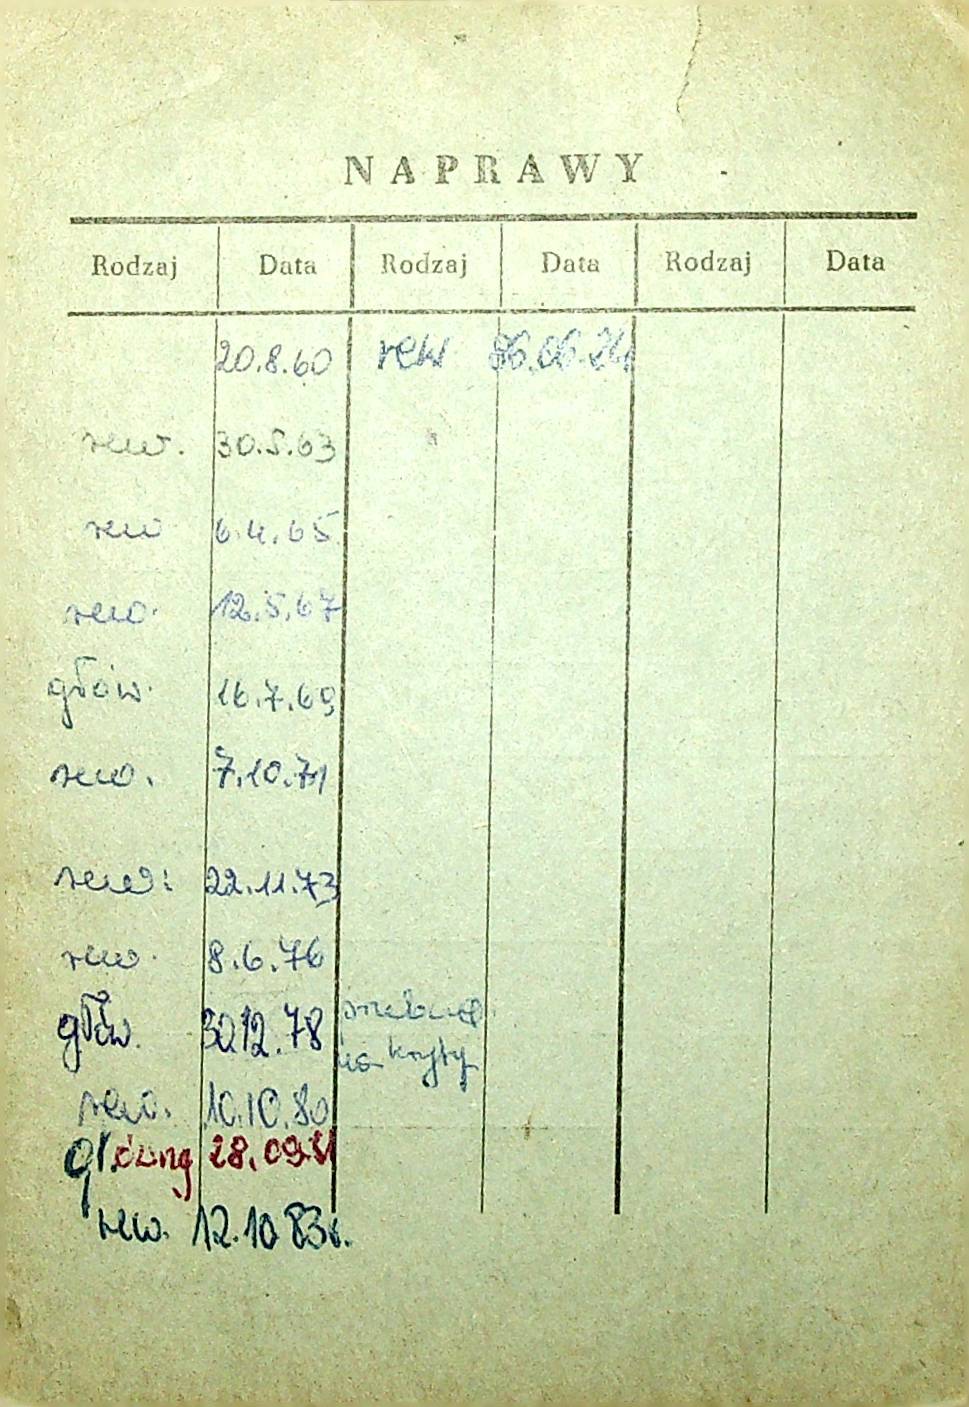 NAPRAWY
Rodzaj Data Rodzaj Data Rodzaj Data
20.8.60 rew 86.06.24
rew. 30.5.63
rew 6.4.65
rew. 12.5.67
głów. 16.7.69
rew. 7.10.71
rew. 22.11.73
rew. 8.6.76
głów. 30.12.78
na kryty
rew. 10.10.80
główną 28.09.81
rew. 12.10.83r.